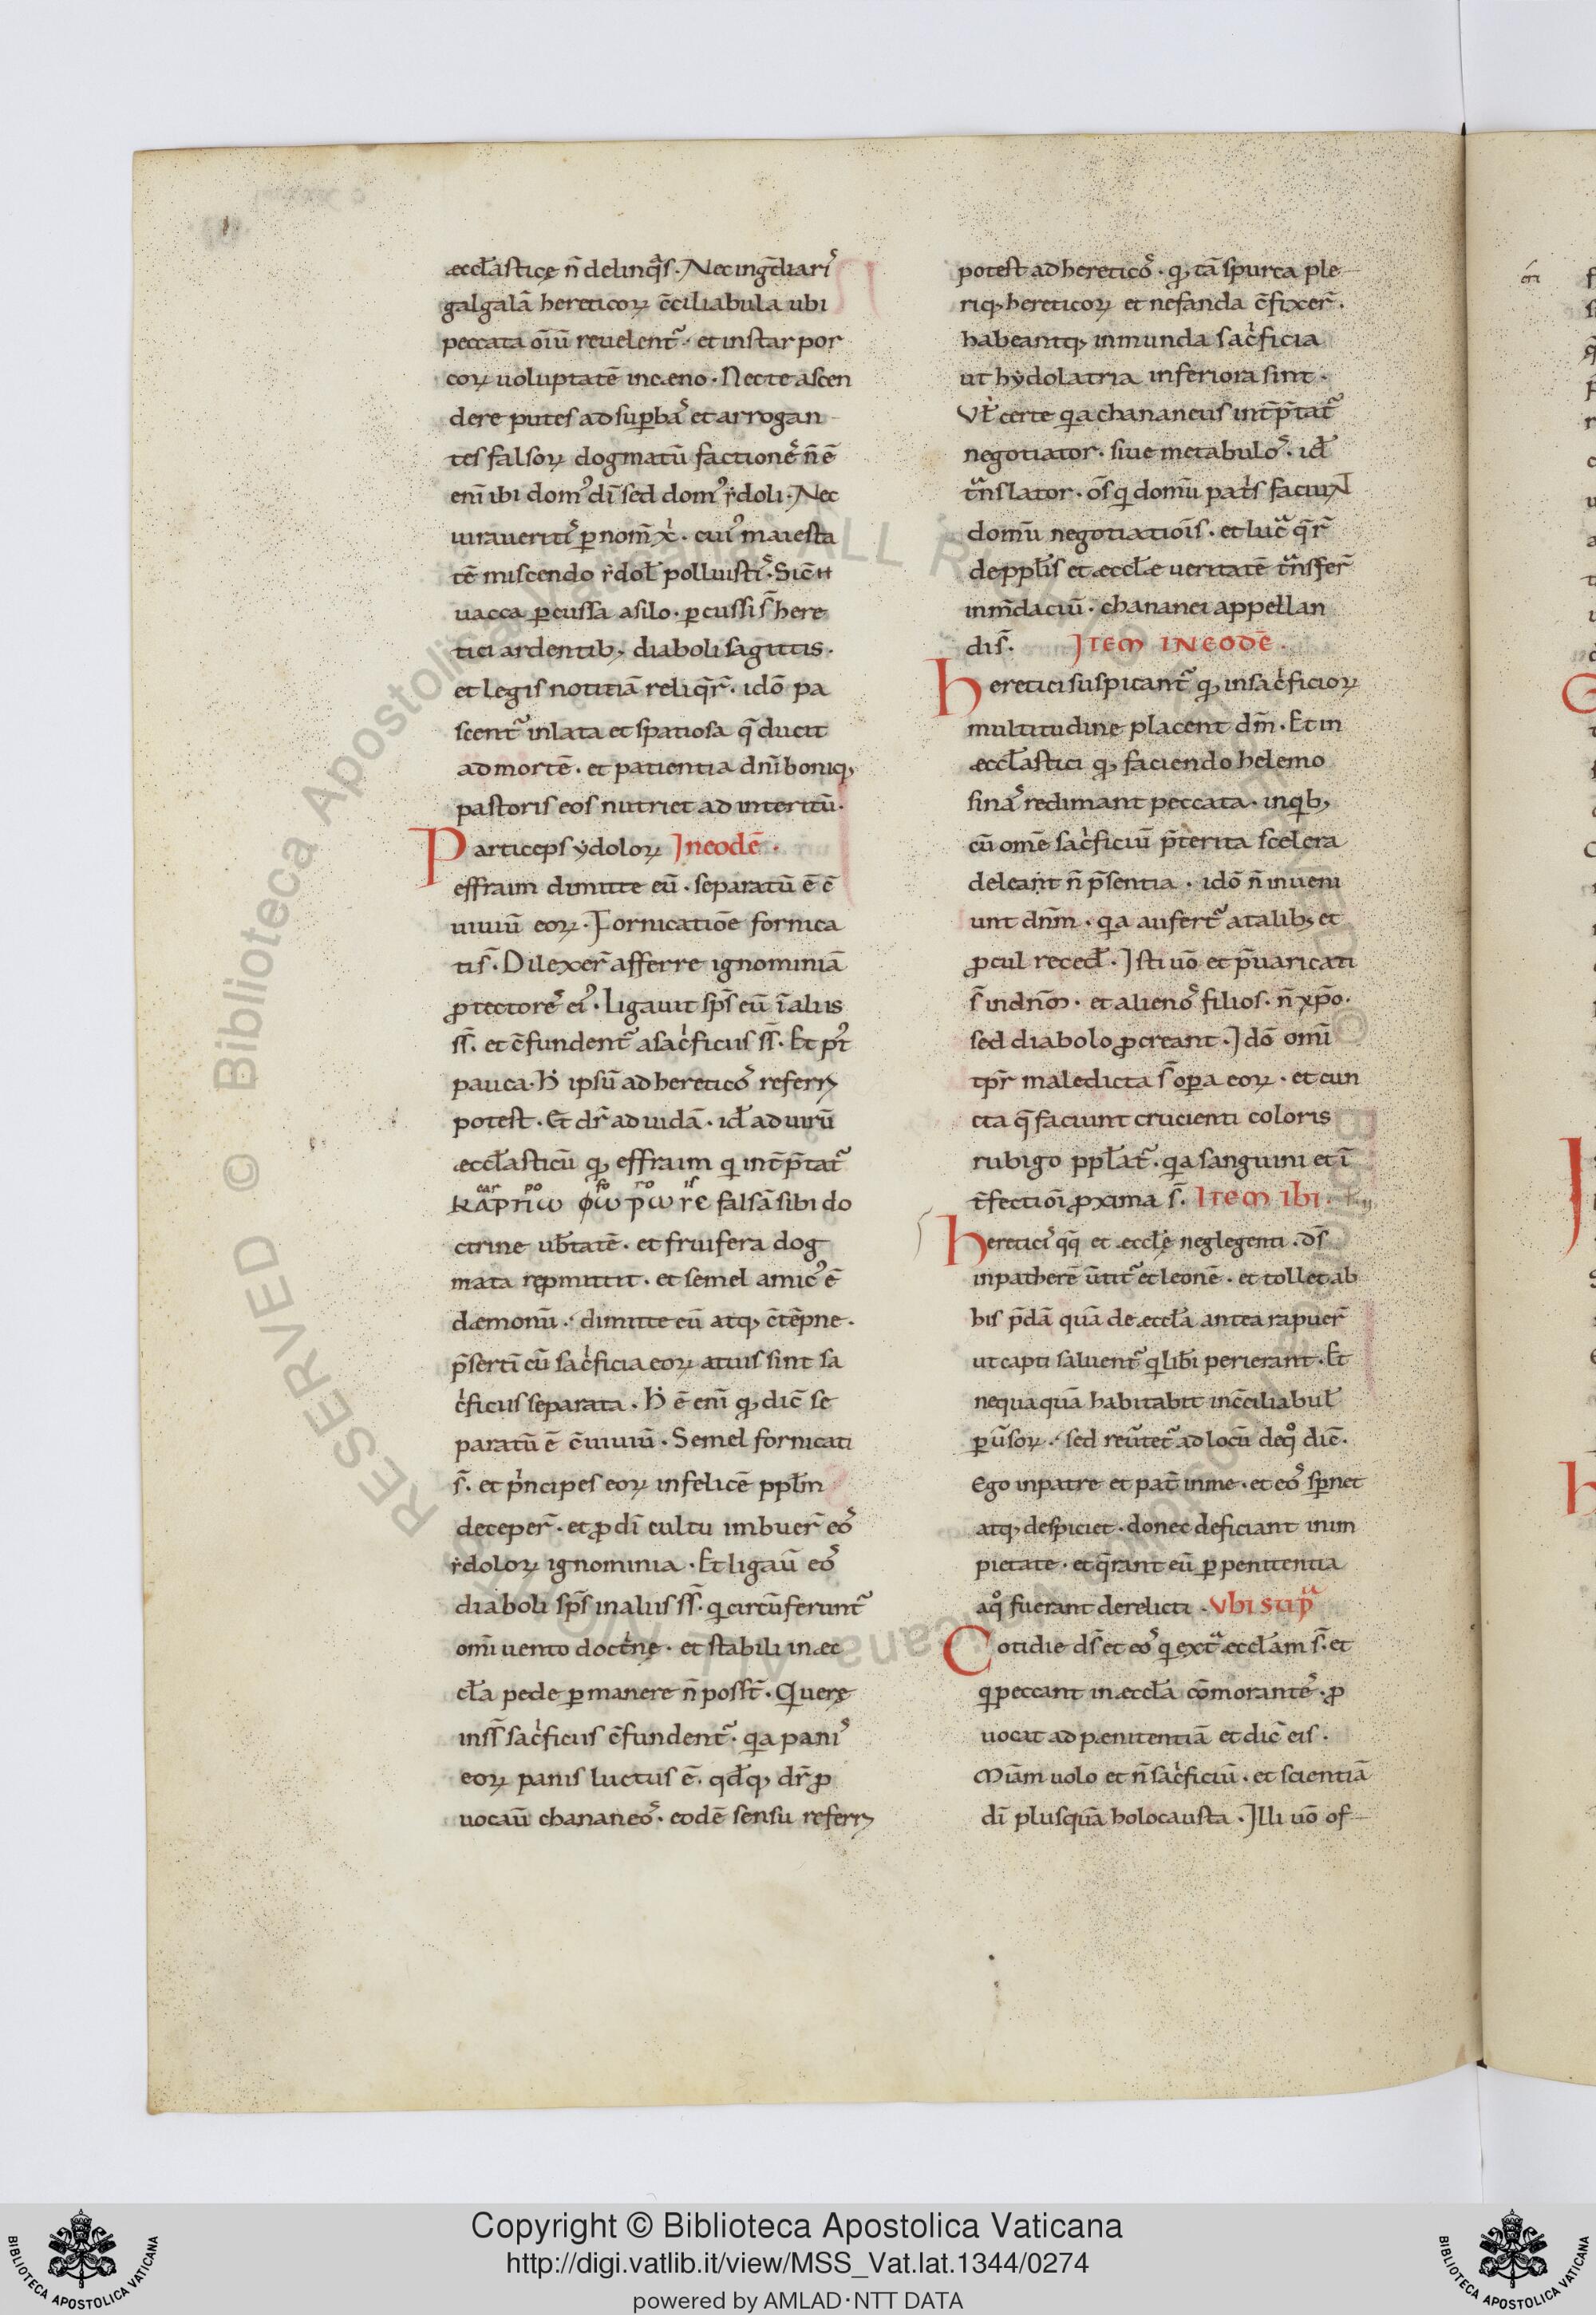 æccłasticę n̄ delinq̄s. Nec ing̃diaris
galgalā hereticoꝝ c̄ciliabula ubi
peccata oīū reuelent᷑. et instar por
coꝝ uoluptatē in cæno. Nec te ascen
dere putes ad supbas et arrogan
tes falsoꝝ dogmatū factiones n̄ ē
enī ibi dom᷒ dī sed dom᷒ ẏdoli. Nec
iuraueritis ꝑ nom̄ xp̄i. cui᷒ maiesta
tē miscendo ẏdoł polluistis. Sic̄
uacca ꝑcussa asilo. ꝑcussi s̄ here
tici ardentib; diaboli sagittis.
et legis notitiā reliq̄r̄. idō pa
scent᷑ in lata et spatiosa q̄ ducit
ad mortē. et patientia dn̄i boniq;
pastoris eos nutriet ad interitū.
Particeps ẏdoloꝝ In eodē.
effraim dimitte eū. separatū ē c̄
uiuiū eoꝝ. Fornicatiōe fornica
ti s̄. Dilexer̄ afferre ignominiā
ꝓtectores ei᷒. Ligauit sp̄s eū ī aliis
ss̄. et c̄fundent᷑ a sac̍ficiis ss̄. Et p᷒t
pauca. H̍ ipsū ad hereticos referri
potest. Et dr̄ ad iudā. id̄ ad uirū
æccłasticū q; effraim qi int̄p̄tat᷑
car po fo ro is
καρπω φωρωrε falsā sibi do
ctrine ub̄tatē. et fruifera dog
mata repmittit. et semel amic᷒ ē
dæmonū. dimitte eū atq; c̄tēpne.
p̄sertī cū sac̍ficia eoꝝ a tuis sint sa
c̍ficiis separata. H̍ ē enī q; dic̄ se
paratū ē c̄uiuiū. Semel fornicati
s̄. et p̍ncipes eoꝝ infelicē ppłm
deceper̄. et ꝓ dī cultu imbuer̄ eos
ẏdoloꝝ ignominia. Et ligaū eos
diaboli sp̄s in aliis ss̄. qi circūferunt᷑
omī uento doct̍nę. et stabili in æc
cła pede ꝑmanere n̄ posst̄. Querę
in ss̄ sac̍ficiis c̄fundent᷑. qa panis
eoꝝ panis luctus ē. qd̄q; dr̄ ꝓ
uocaū chananeos. eodē sensu referri
potest ad hereticos. q; tā spurca ple
riq; hereticoꝝ et nefanda c̄fixer̄.
habeantq; inmunda sac̍ficia
ut hẏdolatria inferiora sint.
Vt̍ certe qa chananeus int̄p̄tat᷑
negotiator. siue metabulos. id̄
tᷓnslator. ōs qi domū pat̍s faciunt
domū negotiatiōis. et lucᷓ q̄r̄
de ppłis et æccłæ ueritatē tᷓnsfer̄
in m̄daciū. chananei appellan
di s̄. Item in eodē.
Heretici suspicant᷑ q; in sac̍ficioꝝ
multitudine placent dm̄. Et in
æccłastici q; faciendo helemo
sinas redimant peccata. in qb;
cū omē sac̍ficiū p̄terita scelera
deleant n̄ p̄sentia. idō n̄ inueni
unt dn̄m. qa aufert᷑ a talib; et
ꝓcul reced̄. Isti uō et p̄uaricati
s̄ in dn̄m. et alienos filios. n̄ xp̄o.
sed diabolo ꝓcreant. Idō omī
tpr̄ maledicta s̄ opa eoꝝ. et cun
cta q̄ faciunt crucienti coloris
rubigo ppłat᷑. qa sanguini et ī
t̄fectioī ꝓxima s̄. Item ibi.
Hereticis qq̄ et æccłę neglegenti. ds̄
in patherē ūtit᷑ et leonē. et tollet ab
his p̄dā quā de æccła antea rapuer̄
ut capti saluent᷑ qi libī perierant. Et
nequaquā habitabit in c̄ciliabuł
ꝑūsoꝝ. sed reūtet᷑ ad locū de qͦ dic̄.
Ego in patre et pat̄ in me. et eos spnet
atq; despiciet. donec deficiant in im
pietate. et q̄rant eū ꝑ penitentia
a qͦ fuerant derelicti. Vbi supᷓ
Cotidie ds̄ et eos qi extᷓ æccłam s̄. et
qi peccant in æccła cōmorantes. ꝓ
uocat ad pænitentiā et dic̄ eis.
Miām uolo et n̄ sac̍ficiū. et scientiā
dī plusquā holocausta. Illi uō of
Copyright © Biblioteca Apostolica Vaticana
http://digi.vatlib.it/view/MSS_Vat.lat.1344/0274
powered by AMLAD·NTT DATA